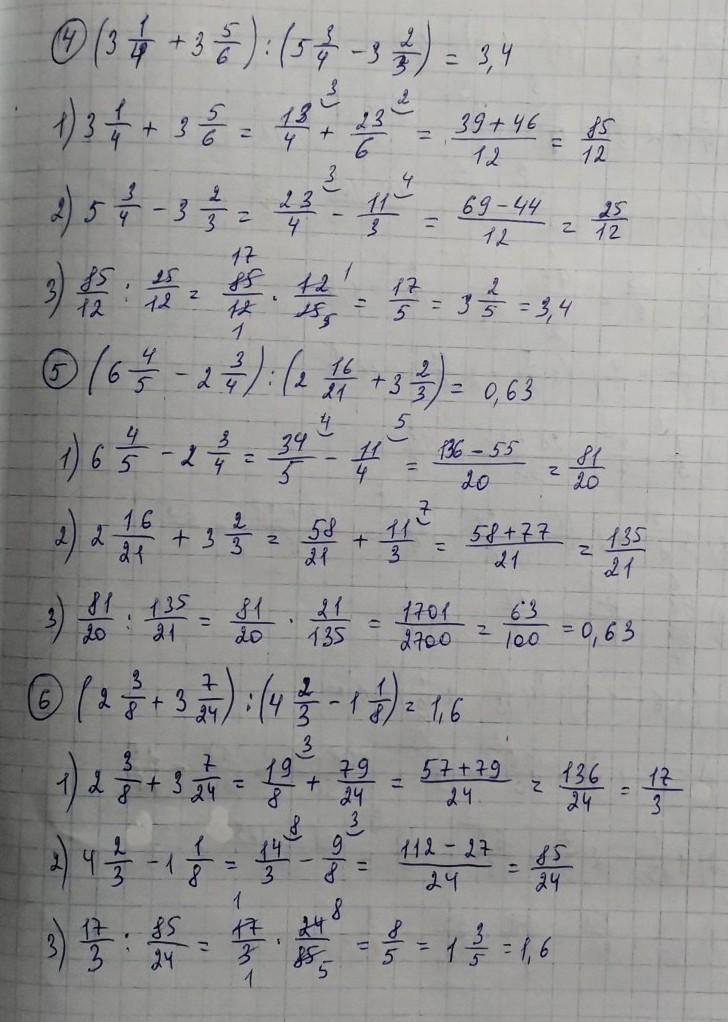 ④ (3 1/4 + 3 5/6) : (5 3/4 - 3 2/3) = 3,4
1) 3 1/4 + 3 5/6 = 13/4 ³ + 23/6 ² = (39+46)/12 = 85/12
2) 5 3/4 - 3 2/3 = 23/4 ³ - 11/3 ⁴ = (69-44)/12 = 25/12
3) 85/12 : 25/12 = 85 17/12 1 · 12 1/25 5 = 17/5 = 3 2/5 = 3,4
⑤ (6 4/5 - 2 3/4) : (2 16/21 + 3 2/3) = 0,63
1) 6 4/5 - 2 3/4 = 34/5 ⁴ - 11/4 ⁵ = (136-55)/20 = 81/20
2) 2 16/21 + 3 2/3 = 58/21 + 11/3 ⁷ = (58+77)/21 = 135/21
3) 81/20 : 135/21 = 81/20 · 21/135 = 1701/2700 = 63/100 = 0,63
⑥ (2 3/8 + 3 7/24) : (4 2/3 - 1 1/8) = 1,6
1) 2 3/8 + 3 7/24 = 19/8 ³ + 79/24 = (57+79)/24 = 136/24 = 17/3
2) 4 2/3 - 1 1/8 = 14/3 ⁸ - 9/8 ³ = (112-27)/24 = 85/24
3) 17/3 : 85/24 = 17 1/3 1 · 24 8/85 5 = 8/5 = 1 3/5 = 1,6